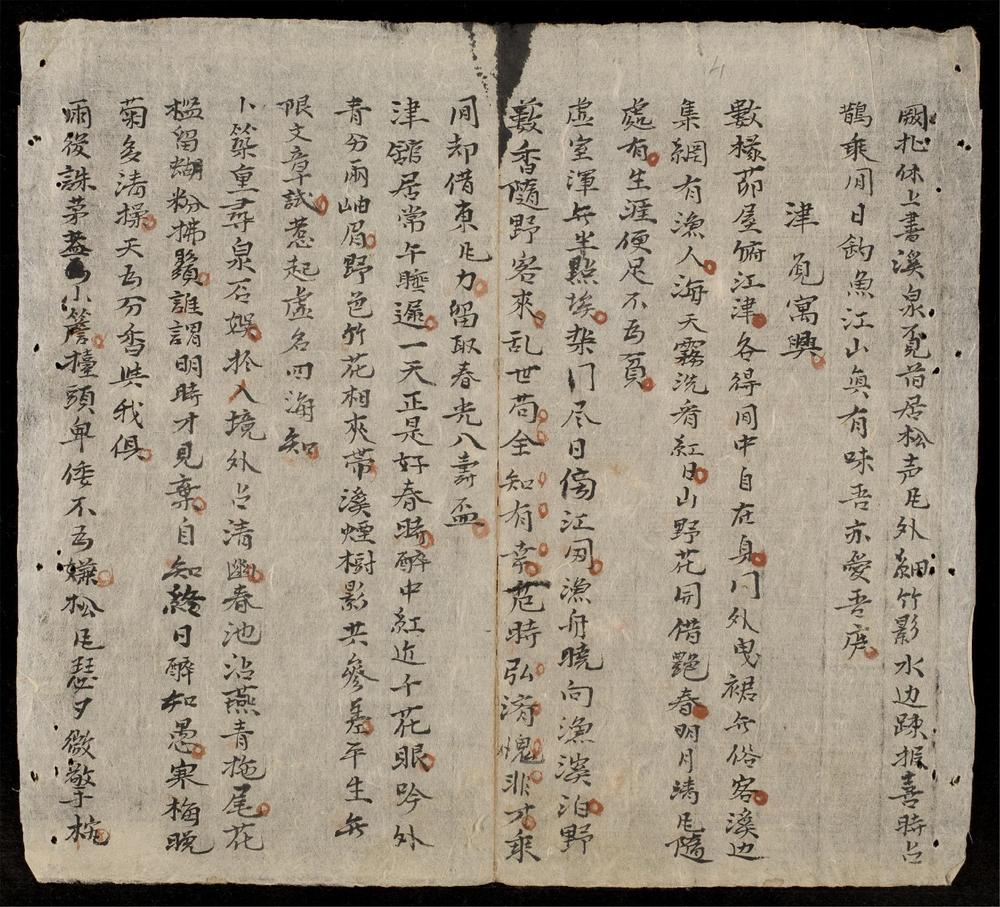 闕扎休上書溪泉覔莒居松声凡外細竹影水边踈掁喜時占
鵲乘閒日釣魚江山真有味吾亦愛吾庐
津覔寓興
數椽茆屋俯江津各得閒中自在身门外曳裾无俗客溪边
集網有漁人海天霧洗看紅日山野花開借艷春明月清凡隨
處有生涯便足不為貧
虛室渾无半點埃柴门尽日傍江囙漁舟曉向漁溪泊野
蔌香隨野客來乱世苟全知有幸危時弘濟愧非才乘
閒却借東凡力留取春光入壽盃
津舘居常午睡遲一天正是好春時醉中紅近千花眼吟外
青分兩岫眉野色竹花相夾帶溪煙樹影共參差平生无
限文章試惹起虛名四海知
卜築重尋泉石娛於人境外占清幽春池沾燕青拖尾花
檻留蝴粉拂鬚誰謂明時才見棄自知終日醉如愚寒梅晚
菊多清操天為分香與我俱
雨後誅茅蓋小簷檯頭卑倭不為嫌松凡瑟夕微擎梡